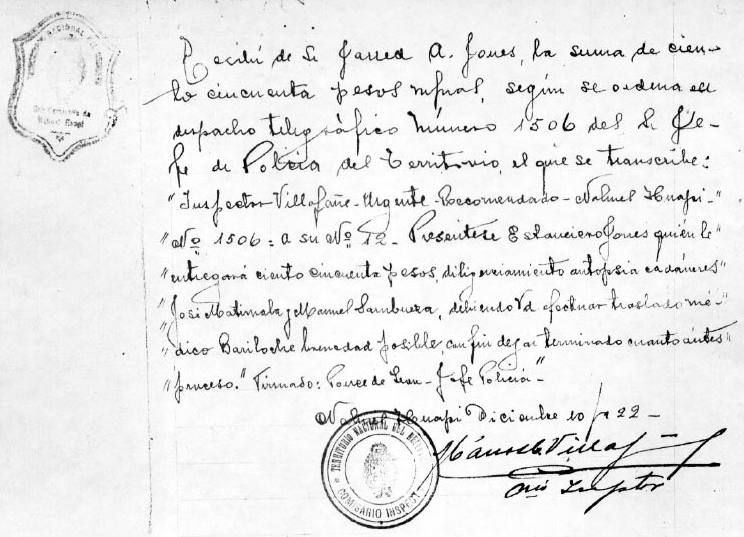 Recibí de Sr Jarred A. Jones, la suma de cien-
to cincuenta pesos m/nal, según se ordena en
despacho telegráfico Número 1506 del Sr Je-
fe de Policía del Territorio, el que se transcribe:
"Inspector Villafañe - Urgente - Recomendado - Nahuel Huapi -"
"Nº 1506 = a su Nº 12 - Preséntese Estanciero Jones quién le"
"entregará ciento cincuenta pesos, diligenciamiento autopsia cadáveres"
"José Matimala y Manuel Sambueza, debiendo Vd efectuar traslado mé-"
"dico Bariloche brevedad posible, con fin dejar terminado cuanto antes"
"proceso." Firmado: Ponce de Leon - Jefe Policía -"
Nahuel Huapi Diciembre 10/922 -
TERRITORIO NACIONAL DEL
COMISARIO INSPECT
Villaf
Inspector